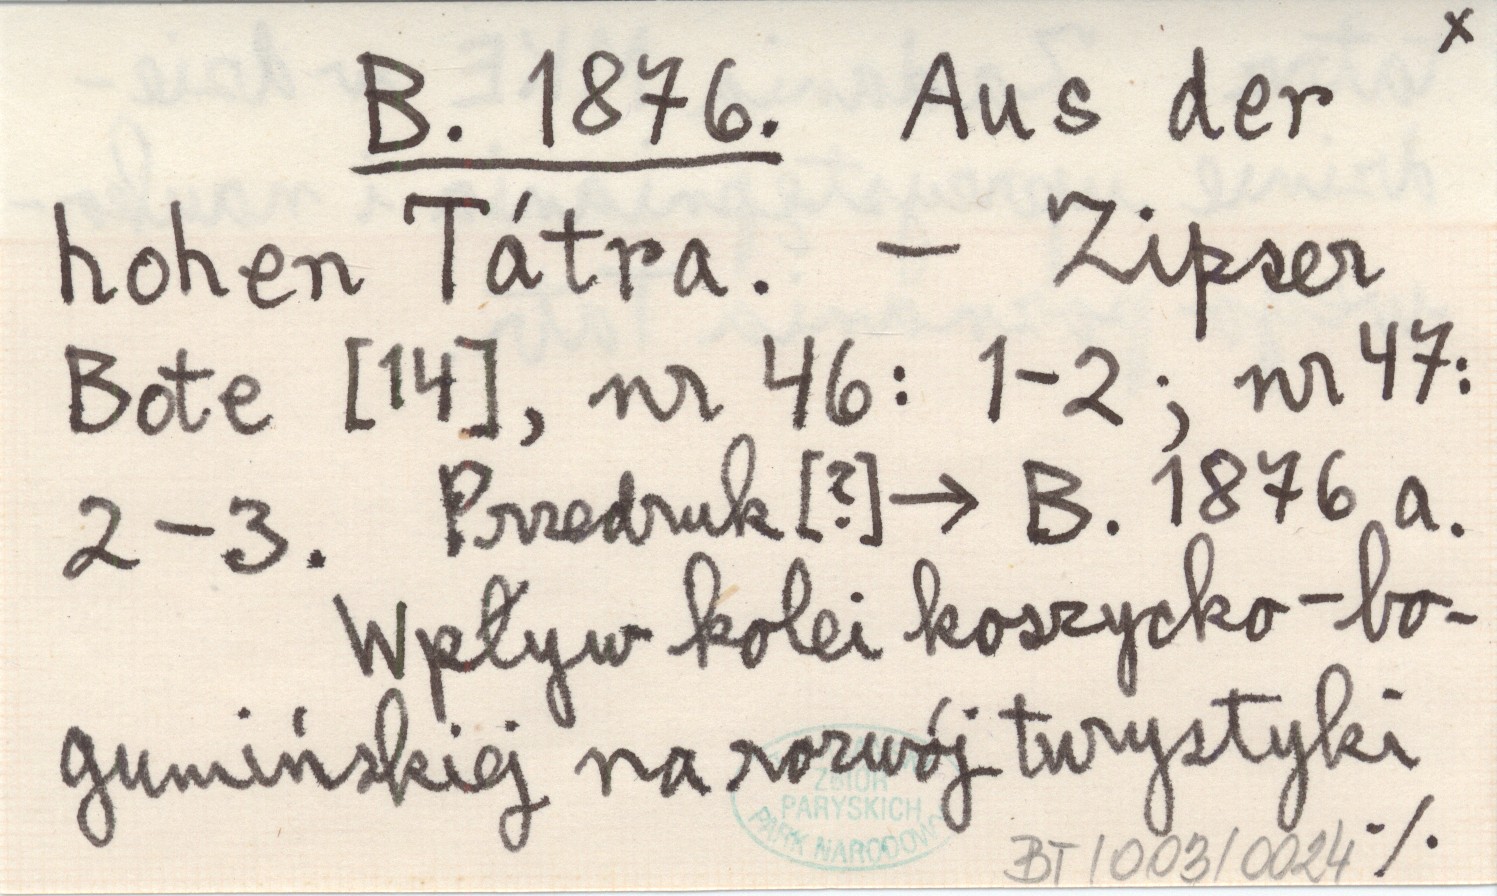 x
B. 1876. Aus der
hohen Tátra. – Zipser
Bote [14], nr 46: 1–2; nr 47:
2–3. Przedruk [?] → B. 1876 a.
Wpływ kolei koszycko-bo-
gumińskiej na rozwój turystyki
ZBIÓR
PARYSKICH
PARK NARODOWY
BT/003/0024 ·/.